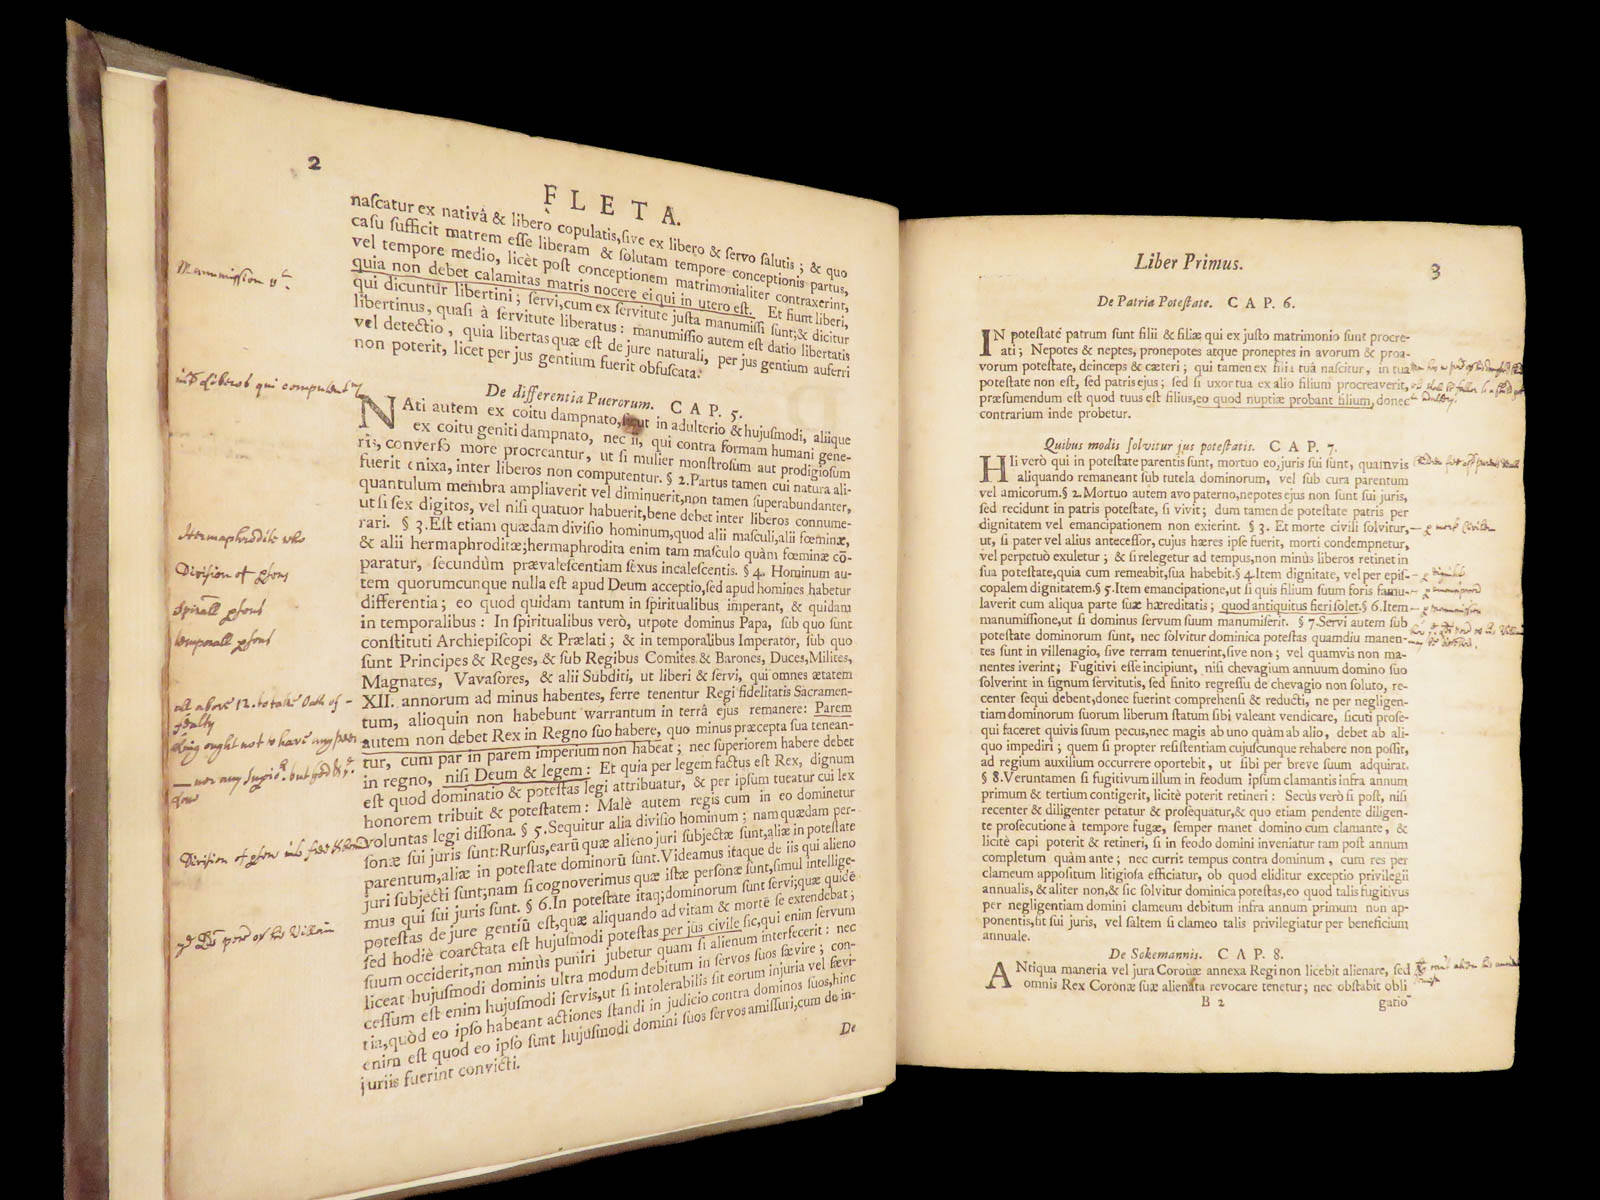 2
FLETA.
naſcatur ex nativâ & liberò copulatis,ſive ex libero & ſervo ſalutis ; & quo
caſu ſufficit matrem eſſe liberam & ſolutam tempore conceptionis partus,
vel tempore medio, licèt poſt conceptionem matrimonialiter contraxerint,
quia non debet calamitas matris nocere ei qui in utero eſt. Et fiunt liberi,
qui dicuntur libertini ; ſervi,cum ex ſervitute juſta manumiſſi ſunt;& dicitur
libertinus, quaſi à ſervitute liberatus : manumiſſio autem eſt datio libertatis
vel detectio, quia libertas quæ eſt de jure naturali, per jus gentium auferri
non poterit, licet per jus gentium fuerit obfuſcata.
Manumission
De differentia Puerorum. CAP. 5.
NAti autem ex coitu dampnato, in adulterio & hujuſmodi, aliique
ex coitu geniti dampnato, nec ii, qui contra formam humani gene-
ris, converſo more procreantur, ut ſi mulier monſtroſum aut prodigioſum
fuerit enixa, inter liberos non computentur. § 2.Partus tamen cui natura ali-
quantulum membra ampliaverit vel diminuerit,non tamen ſuperabundanter,
ut ſi ſex digitos, vel niſi quatuor habuerit,bene debet inter liberos connume-
rari. § 3.Eſt etiam quædam diviſio hominum,quod alii maſculi,alii fœminæ,
& alii hermaphroditæ;hermaphrodita enim tam maſculo quàm fœminæ cō-
paratur, ſecundùm prævaleſcentiam ſexus incaleſcentis. § 4. Hominum au-
tem quorumcunque nulla eſt apud Deum acceptio,ſed apud homines habetur
differentia ; eo quod quidam tantum in ſpiritualibus imperant, & quidam
in temporalibus : In ſpiritualibus verò, utpote dominus Papa, ſub quo ſunt
conſtituti Archiepiſcopi & Prælati ; & in temporalibus Imperator, ſub quo
ſunt Principes & Reges, & ſub Regibus Comites & Barones, Duces,Milites,
Magnates, Vavaſores, & alii Subditi, ut liberi & ſervi, qui omnes ætatem
XII. annorum ad minus habentes, ferre tenentur Regi fidelitatis Sacramen-
tum, alioquin non habebunt warrantum in terrâ ejus remanere: Parem
autem non debet Rex in Regno ſuo habere, quo minus præcepta ſua tenean-
tur, cum par in parem imperium non habeat ; nec ſuperiorem habere debet
in regno, niſi Deum & legem : Et quia per legem factus eſt Rex, dignum
eſt quod dominatio & poteſtas legi attribuatur, & per ipſum tueatur cui lex
honorem tribuit & poteſtatem : Malè autem regis cum in eo dominetur
voluntas legi diſſona. § 5.Sequitur alia diviſio hominum ; nam quædam per-
ſonæ ſui juris ſunt:Rurſus,earū quæ alieno juri ſubjectæ ſunt,aliæ in poteſtate
parentum,aliæ in poteſtate dominorū ſunt.Videamus itaque de iis qui alieno
juri ſubjecti ſunt;nam ſi cognoverimus quæ iſtæ perſonæ ſunt,ſimul intellige-
mus qui ſui juris ſunt. § 6.In poteſtate itaq;dominorum ſunt ſervi;quæ quidē
poteſtas de jure gentiū eſt,quæ aliquando ad vitam & mortē ſe extendebat ;
ſed hodiè coarctata eſt hujuſmodi poteſtas per jus civile ſic,qui enim ſervum
ſuum occiderit,non minùs puniri jubetur quam ſi alienum interfecerit : nec
liceat hujuſmodi dominis ultra modum debitum in ſervos ſuos ſævire ; con-
ceſſum eſt enim hujuſmodi ſervis,ut ſi intolerabilis ſit eorum injuria vel ſævi-
tia,quòd eo ipſo habeant actiones ſtandi in judicio contra dominos ſuos,hinc
enim eſt quod eo ipſo ſunt hujuſmodi domini ſuos ſervos amiſſuri,cum de in-
juriis fuerint convicti.
De
Hermaphrodite who
Division of psons
Spirall psons
temporall psons
all above 12. to take Oath of
fealty
King ought not to have any peer
nor any Supior. but god & ye
Law
Liber Primus.
3
De Patria Poteſtate. CAP. 6.
IN poteſtate patrum ſunt filii & filiæ qui ex juſto matrimonio ſunt procre-
ati ; Nepotes & neptes, pronepotes atque proneptes in avorum & proa-
vorum poteſtate, deinceps & cæteri ; qui tamen ex filia tuâ naſcitur, in tua
poteſtate non eſt, ſed patris ejus ; ſed ſi uxor tua ex alio filium procreaverit,
præſumendum eſt quod tuus eſt filius,eo quod nuptiæ probant filium, donec
contrarium inde probetur.
Quibus modis ſolvitur jus poteſtatis. CAP. 7.
HIi verò qui in poteſtate parentis ſunt, mortuo eo,juris ſui ſunt, quamvis
aliquando remaneant ſub tutela dominorum, vel ſub cura parentum
vel amicorum.§ 2.Mortuo autem avo paterno,nepotes ejus non ſunt ſui juris,
ſed recidunt in patris poteſtate, ſi vivit ; dum tamen de poteſtate patris per
dignitatem vel emancipationem non exierint. § 3. Et morte civili ſolvitur,
ut, ſi pater vel alius anteceſſor, cujus hæres ipſe fuerit, morti condempnetur,
vel perpetuò exuletur ; & ſi relegetur ad tempus,non minùs liberos retinet in
ſua poteſtate,quia cum remeabit,ſua habebit.§ 4.Item dignitate, vel per epiſ-
copalem dignitatem.§ 5.Item emancipatione,ut ſi quis filium ſuum foris famu-
laverit cum aliqua parte ſuæ hæreditatis ; quod antiquitus fieri ſolet.§ 6.Item
manumiſſione,ut ſi dominus ſervum ſuum manumiſerit. § 7.Servi autem ſub
poteſtate dominorum ſunt, nec ſolvitur dominica poteſtas quamdiu manen-
tes ſunt in villenagio, ſive terram tenuerint,ſive non ; vel quamvis non ma-
nentes iverint ; Fugitivi eſſe incipiunt, niſi chevagium annuum domino ſuo
ſolverint in ſignum ſervitutis, ſed finito regreſſu de chevagio non ſoluto, re-
center ſequi debent,donec fuerint comprehenſi & reducti, ne per negligen-
tiam dominorum ſuorum liberum ſtatum ſibi valeant vendicare, ſicuti proſe-
qui faceret quivis ſuum pecus,nec magis ab uno quàm ab alio, debet ab ali-
quo impediri ; quem ſi propter reſiſtentiam cujuſcunque rehabere non poſſit,
ad regium auxilium occurrere oportebit, ut ſibi per breve ſuum adquirat.
§ 8.Veruntamen ſi fugitivum illum in feodum ipſum clamantis infra annum
primum & tertium contigerit, licitè poterit retineri : Secùs verò ſi poſt, niſi
recenter & diligenter petatur & proſequatur,& quo etiam pendente diligen-
te proſecutione à tempore fugæ, ſemper manet domino cum clamante, &
licitè capi poterit & retineri, ſi in feodo domini inveniatur tam poſt annum
completum quàm ante ; nec currit tempus contra dominum , cum res per
clameum appoſitum litigioſa efficiatur, ob quod eliditur exceptio privilegii
annualis, & aliter non,& ſic ſolvitur dominica poteſtas,eo quod talis fugitivus
per negligentiam domini clameum debitum infra annum primum non ap-
ponentis,fit ſui juris, vel ſaltem ſi clameo talis privilegiatur per beneficium
annuale.
De Sokemannis. CAP. 8.
ANtiqua maneria vel jura Coronæ annexa Regi non licebit alienare, ſed
omnis Rex Coronæ ſuæ alienata revocare tenetur ; nec obſtabit obli
B 2
gatio